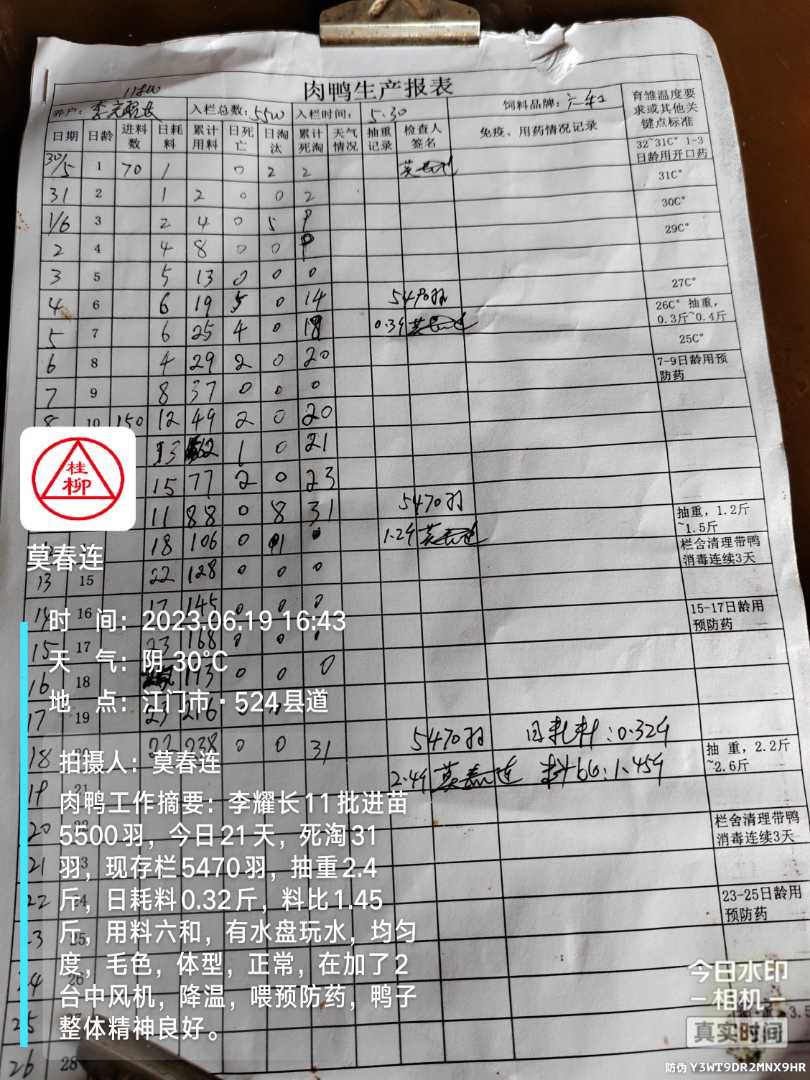 肉鸭生产报表
养户: 李 长 入栏总数: 5500 入栏时间: 5.30 饲料品牌: 六和 育雏温度要求或其他关键点标准
日期 日龄 进料数 日耗料 累计用料 日死亡 日淘汰 累计死淘 天气情况 抽重记录 检查人签名 免疫、用药情况记录
30/5 1 70 1 0 2 2 32~31C° 1-3日龄用开口药
31 2 1 2 0 0 2 31C°
1/6 3 2 4 0 5 9 30C°
2 4 4 8 0 0 9 29C°
3 5 5 13 0 0 0 27C°
4 6 6 19 5 0 14 5490羽 26C° 抽重,0.3斤~0.4斤
5 7 6 25 4 0 18 0.3斤 莫春连 25C°
6 8 4 29 2 0 20 7-9日龄用预防药
7 9 8 37 0 0 0
8 10 150 12 49 2 0 20
13 62 1 0 21
15 77 2 0 23
11 88 0 8 31 5470羽 抽重,1.2斤~1.5斤
18 106 0 1.2斤 莫春连 栏舍清理带鸭消毒连续3天
13 15 22 128 0 0 0
14 16 17 145 0 0 0 15-17日龄用预防药
15 17 23 168 0 0 0
16 18 0 0 0
17 19 23 216
18 20 22 238 0 0 31 5470羽 日耗料:0.32斤 抽重,2.2斤~2.6斤
19 21 2.4斤 莫春连 料比:1.45斤
20 栏舍清理带鸭消毒连续3天
21
22 23-25日龄用预防药
23
24 26
25
26 28
桂柳
莫春连
时 间: 2023.06.19 16:43
天 气: 阴 30℃
地 点: 江门市·524县道
拍摄人: 莫春连
肉鸭工作摘要: 李耀长11批进苗
5500羽,今日21天,死淘31
羽,现存栏5470羽,抽重2.4
斤,日耗料0.32斤,料比1.45
斤,用料六和,有水盘玩水,均匀
度,毛色,体型,正常,在加了2
台中风机,降温,喂预防药,鸭子
整体精神良好。
今日水印
相机
真实时间
防伪 Y3WT9DR2MNX9HR